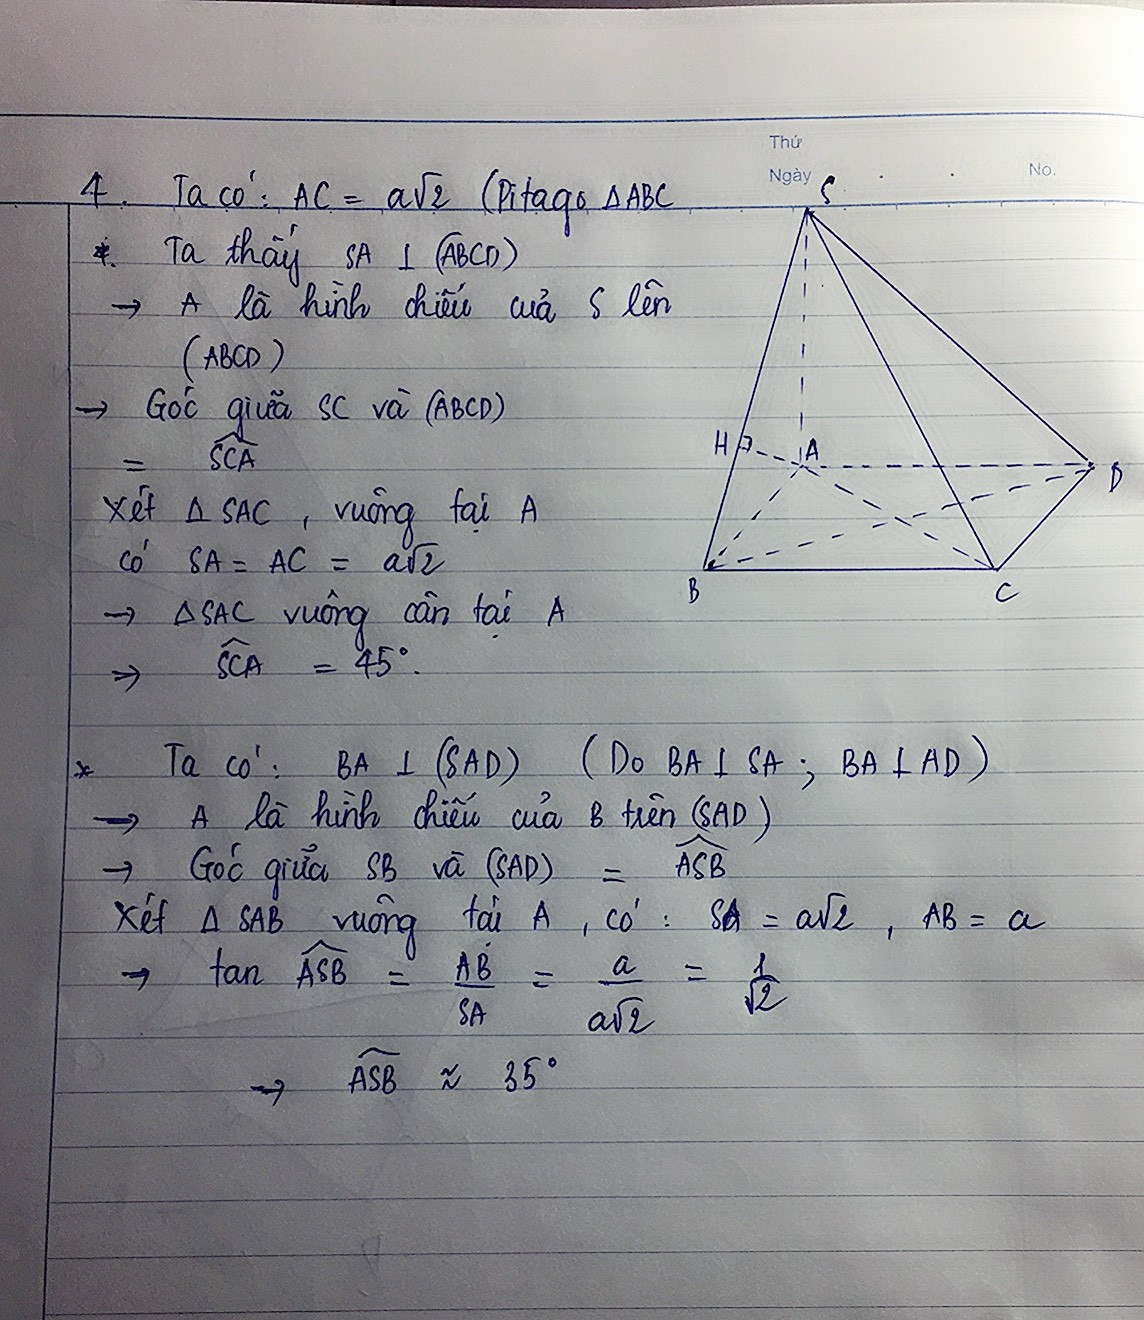 Thứ
Ngày . . No.
4. Ta có: AC = a√2 (Pitago ΔABC
*. Ta thấy SA ⊥ (ABCD)
→ A là hình chiếu của S lên
(ABCD)
→ Góc giữa SC và (ABCD)
= \widehat{SCA}
Xét Δ SAC , vuông tại A
có SA = AC = a√2
→ ΔSAC vuông cân tại A
⇒ \widehat{SCA} = 45°.
S
H
A
D
B
C
* Ta có: BA ⊥ (SAD) (Do BA ⊥ SA ; BA ⊥ AD)
→ A là hình chiếu của B trên (SAD)
→ Góc giữa SB và (SAD) = \widehat{ASB}
Xét Δ SAB vuông tại A , có : SA = a√2 , AB = a
→ tan \widehat{ASB} = AB/SA = a/a√2 = 1/√2
→ \widehat{ASB} ≈ 35°